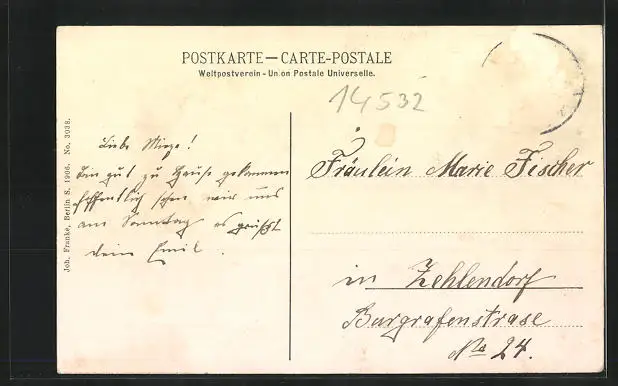 POSTKARTE — CARTE-POSTALE
Weltpostverein - Union Postale Universelle.
14532
Joh. Franke, Berlin S. 1906. No. 3038.
Liebe Mieze!
Bin gut zu Hause gekommen
hoffentlich sehen wir uns
am Sonntag es grüßt
dein Emil.
Fräulein Marie Fischer
in Zehlendorf
Burgrafenstrase
No 24.